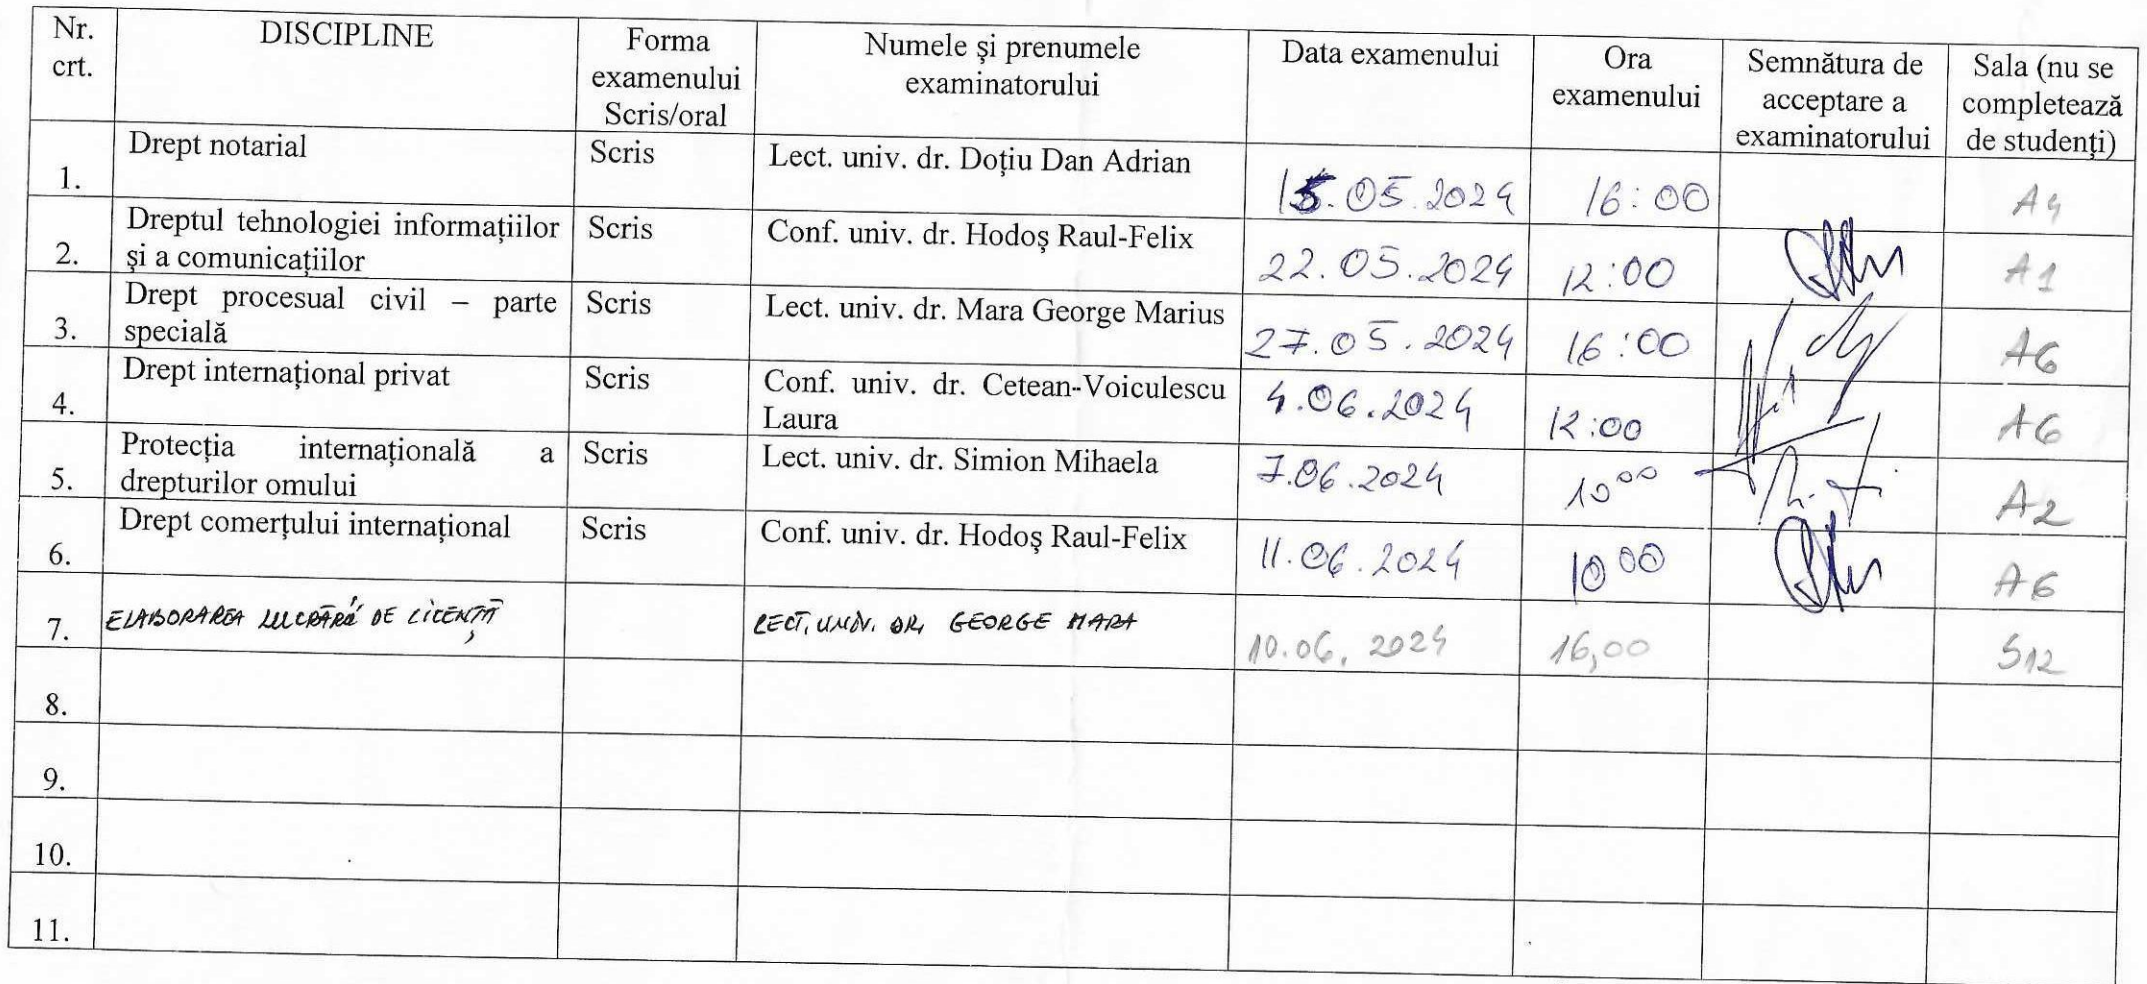 Nr. crt.
DISCIPLINE
Forma examenului Scris/oral
Numele și prenumele examinatorului
Data examenului
Ora examenului
Semnătura de acceptare a examinatorului
Sala (nu se completează de studenți)
1.
Drept notarial
Scris
Lect. univ. dr. Doțiu Dan Adrian
.05.2024
16:00
A4
2.
Dreptul tehnologiei informațiilor
și a comunicațiilor
Scris
Conf. univ. dr. Hodoș Raul-Felix
22.05.2024
12:00
A1
3.
Drept procesual civil – parte
specială
Scris
Lect. univ. dr. Mara George Marius
27.05.2024
16:00
A6
4.
Drept internațional privat
Scris
Conf. univ. dr. Cetean-Voiculescu
Laura
4.06.2024
12:00
A6
5.
Protecția internațională a
drepturilor omului
Scris
Lect. univ. dr. Simion Mihaela
7.06.2024
10 00
A2
6.
Drept comerțului internațional
Scris
Conf. univ. dr. Hodoș Raul-Felix
11.06.2024
10 00
A6
7.
ELABORAREA DE LICENȚĂ
LECT. UNIV. DR. GEORGE MARA
10.06.2024
16,00
S12
8.
9.
10.
11.